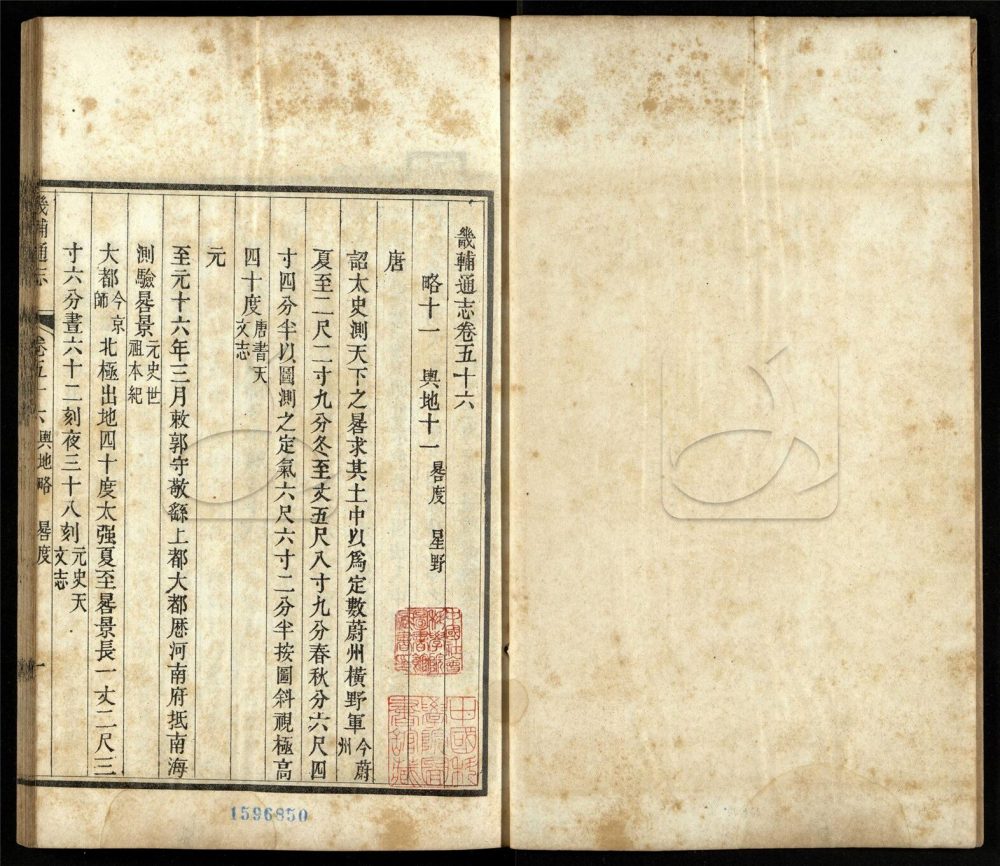 畿輔通志卷五十六
略十一　輿地十一　晷度　星野
唐
詔太史測天下之晷求其土中以爲定數蔚州橫野軍今蔚州
夏至二尺二寸九分冬至丈五尺八寸九分春秋分六尺四
寸四分半以圖測之定氣六尺六寸二分半按圖斜視極高
四十度唐書天文志
元
至元十六年三月敕郭守敬繇上都大都歷河南府抵南海
測驗晷景元史世祖本紀
大都今京師北極出地四十度太强夏至晷景長一丈二尺三
寸六分晝六十二刻夜三十八刻元史天文志
畿輔通志　卷五十六　輿地略　晷度　一
中國社會科學院圖書館藏書章
1596850